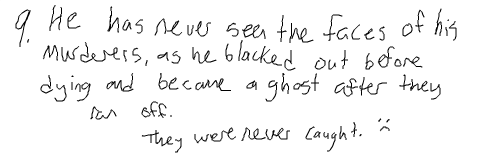 9. He has never seen the faces of his
murderers, as he blacked out before
dying and became a ghost after they
ran off.
They were never caught. :(